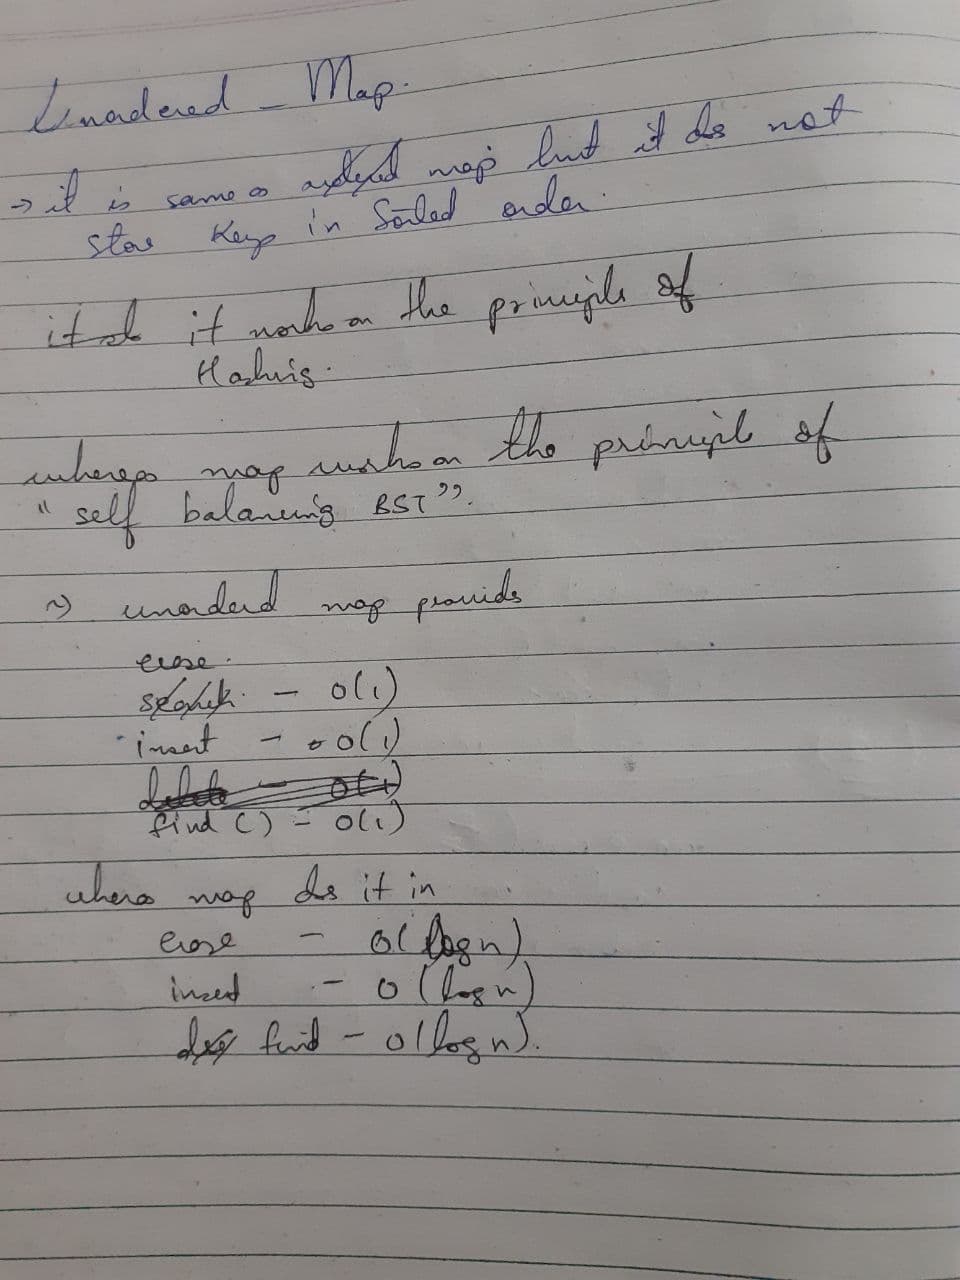 Unordered - Map.
→ it is same as map but it does not
store keys in Sorted order.
it works on the principle of
Hashing.
whereas map works on the principle of
"self balancing BST".
unordered map provides
erase.
search. - O(1)
insert - O(1)
delete - O(1)
find () - O(1)
whereas map does it in
erase - O(log n)
insert - O(log n)
find - O(log n).